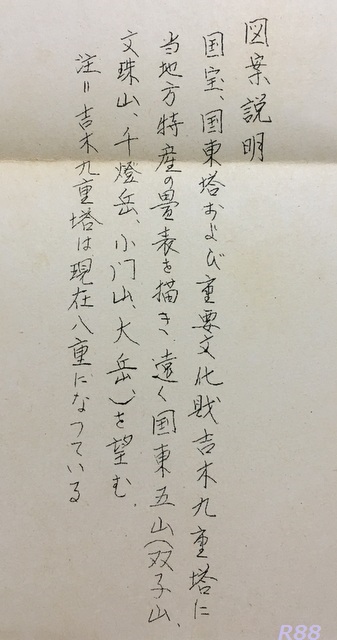 図案説明
国宝、国東塔および重要文化財吉木九重塔に
当地方特産の畳表を描き、遠く国東五山(双子山、
文珠山、千燈岳、小門山、大岳、)を望む
注=吉木九重塔は現在八重になっている
R88